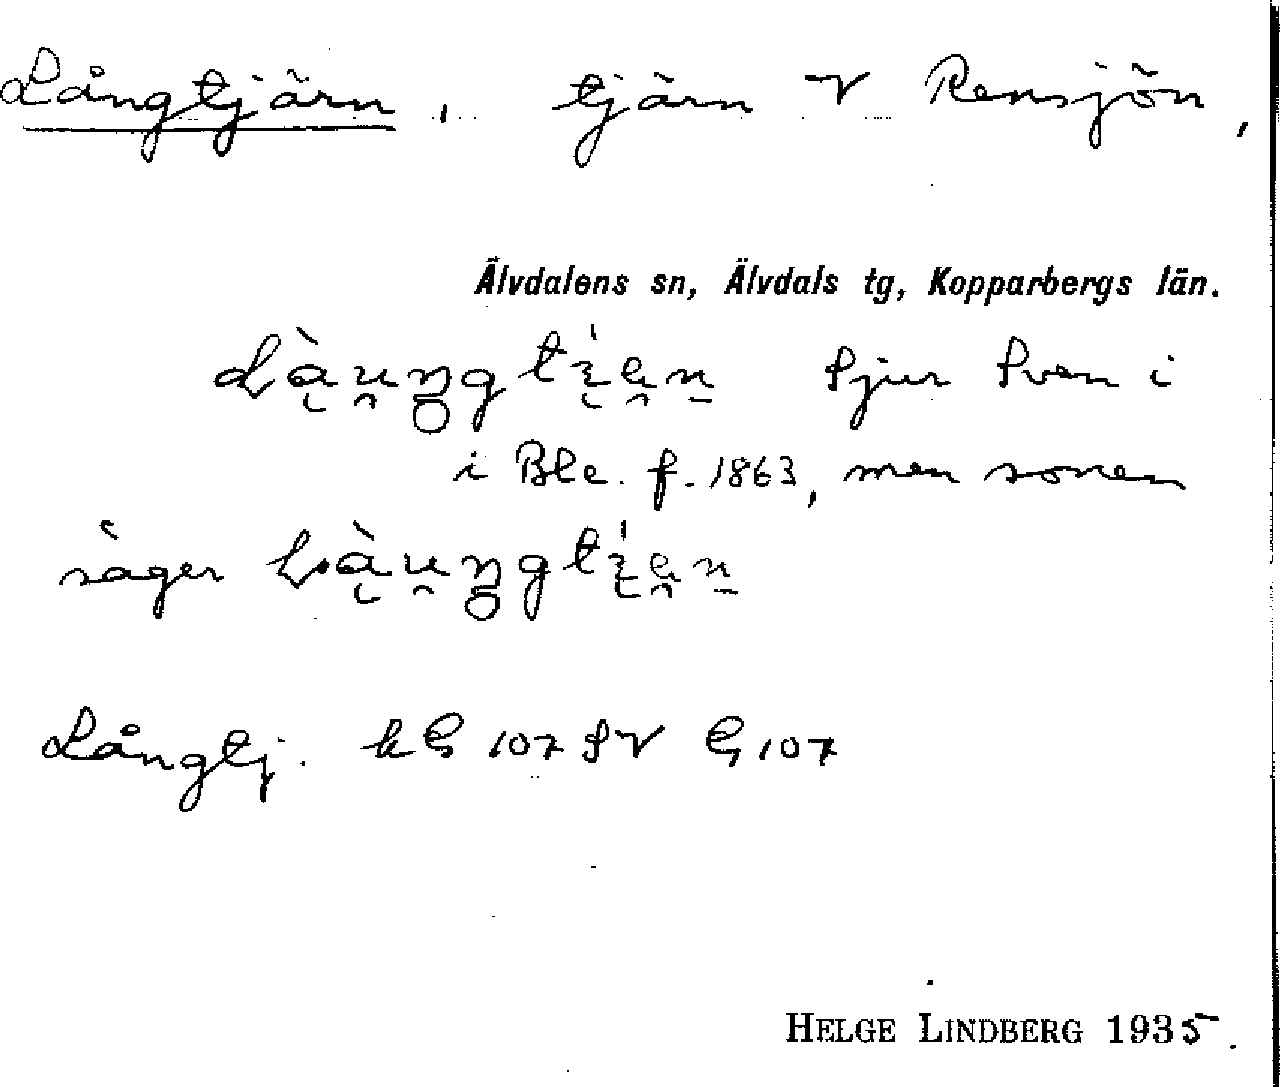 Långtjärn, tjärn V Rensjön,
Älvdalens sn, Älvdals tg, Kopparbergs län.
Sjur Sven i
i Ble. f. 1863, men sonen
säger
Långtj. kG 107 SV G 107
HELGE LINDBERG 1935.